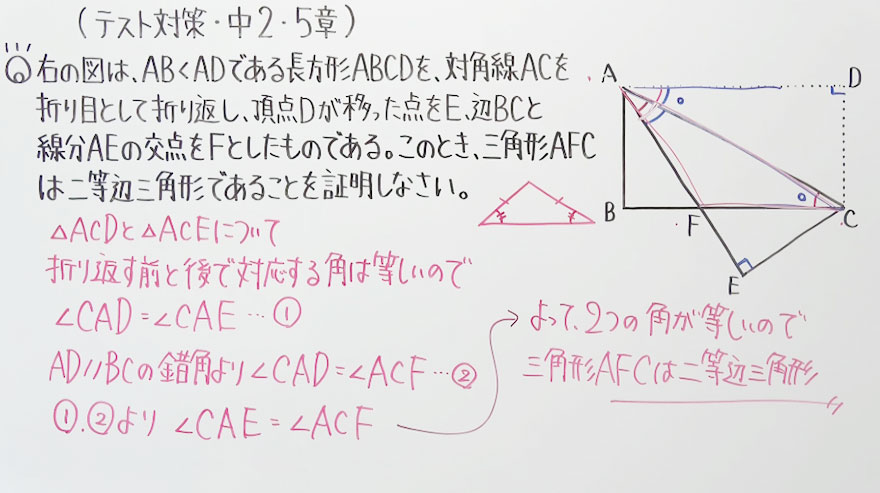 (テスト対策・中2・5章)
右の図は、AB<ADである長方形ABCDを、対角線ACを
折り目として折り返し、頂点Dが移った点をE、辺BCと
線分AEの交点をFとしたものである。このとき、三角形AFC
は二等辺三角形であることを証明しなさい。
△ACDと△ACEについて
折り返す前と後で対応する角は等しいので
∠CAD=∠CAE…①
AD//BCの錯角より∠CAD=∠ACF…②
①、②より ∠CAE=∠ACF
よって、2つの角が等しいので
三角形AFCは二等辺三角形
A
D
B
F
C
E